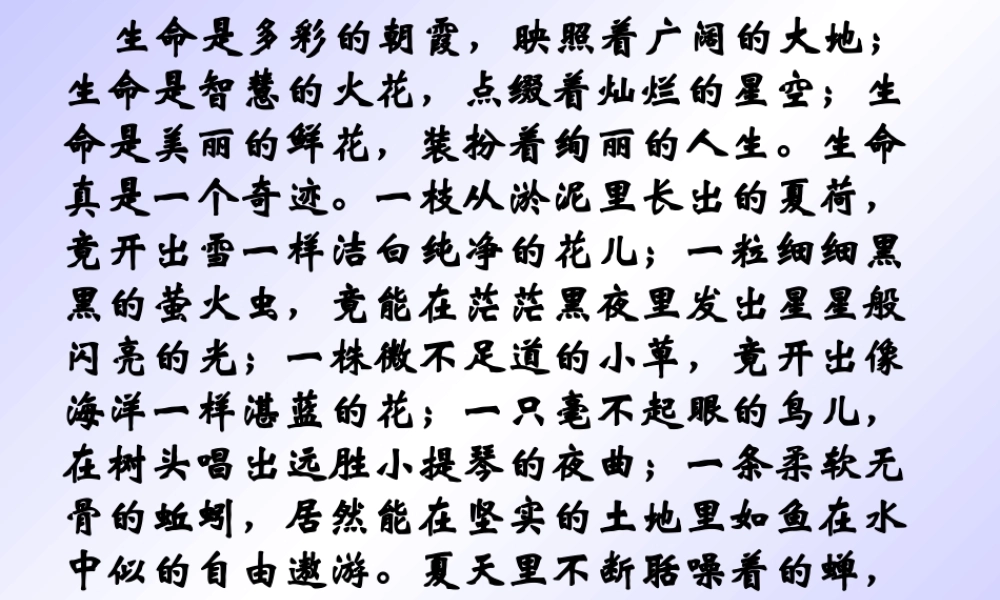 生命是多彩的朝霞，映照着广阔的大地；
生命是智慧的火花，点缀着灿烂的星空；生
命是美丽的鲜花，装扮着绚丽的人生。生命
真是一个奇迹。一枝从淤泥里长出的夏荷，
竟开出雪一样洁白纯净的花儿；一粒细细黑
黑的萤火虫，竟能在茫茫黑夜里发出星星般
闪亮的光；一株微不足道的小草，竟开出像
海洋一样湛蓝的花；一只毫不起眼的鸟儿，
在树头唱出远胜小提琴的夜曲；一条柔软无
骨的蚯蚓，居然能在坚实的土地里如鱼在水
中似的自由遨游。夏天里不断聒噪着的蝉，